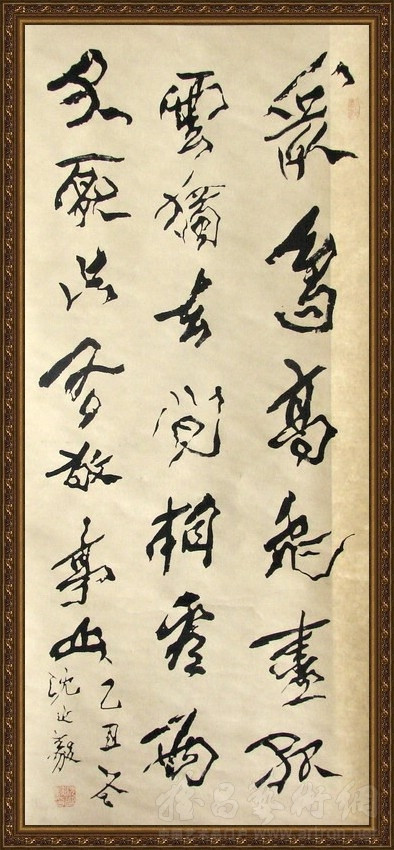 眾鳥高飛盡孤
雲獨去閒相看兩
不厭只有敬亭山
乙丑冬
沈延毅